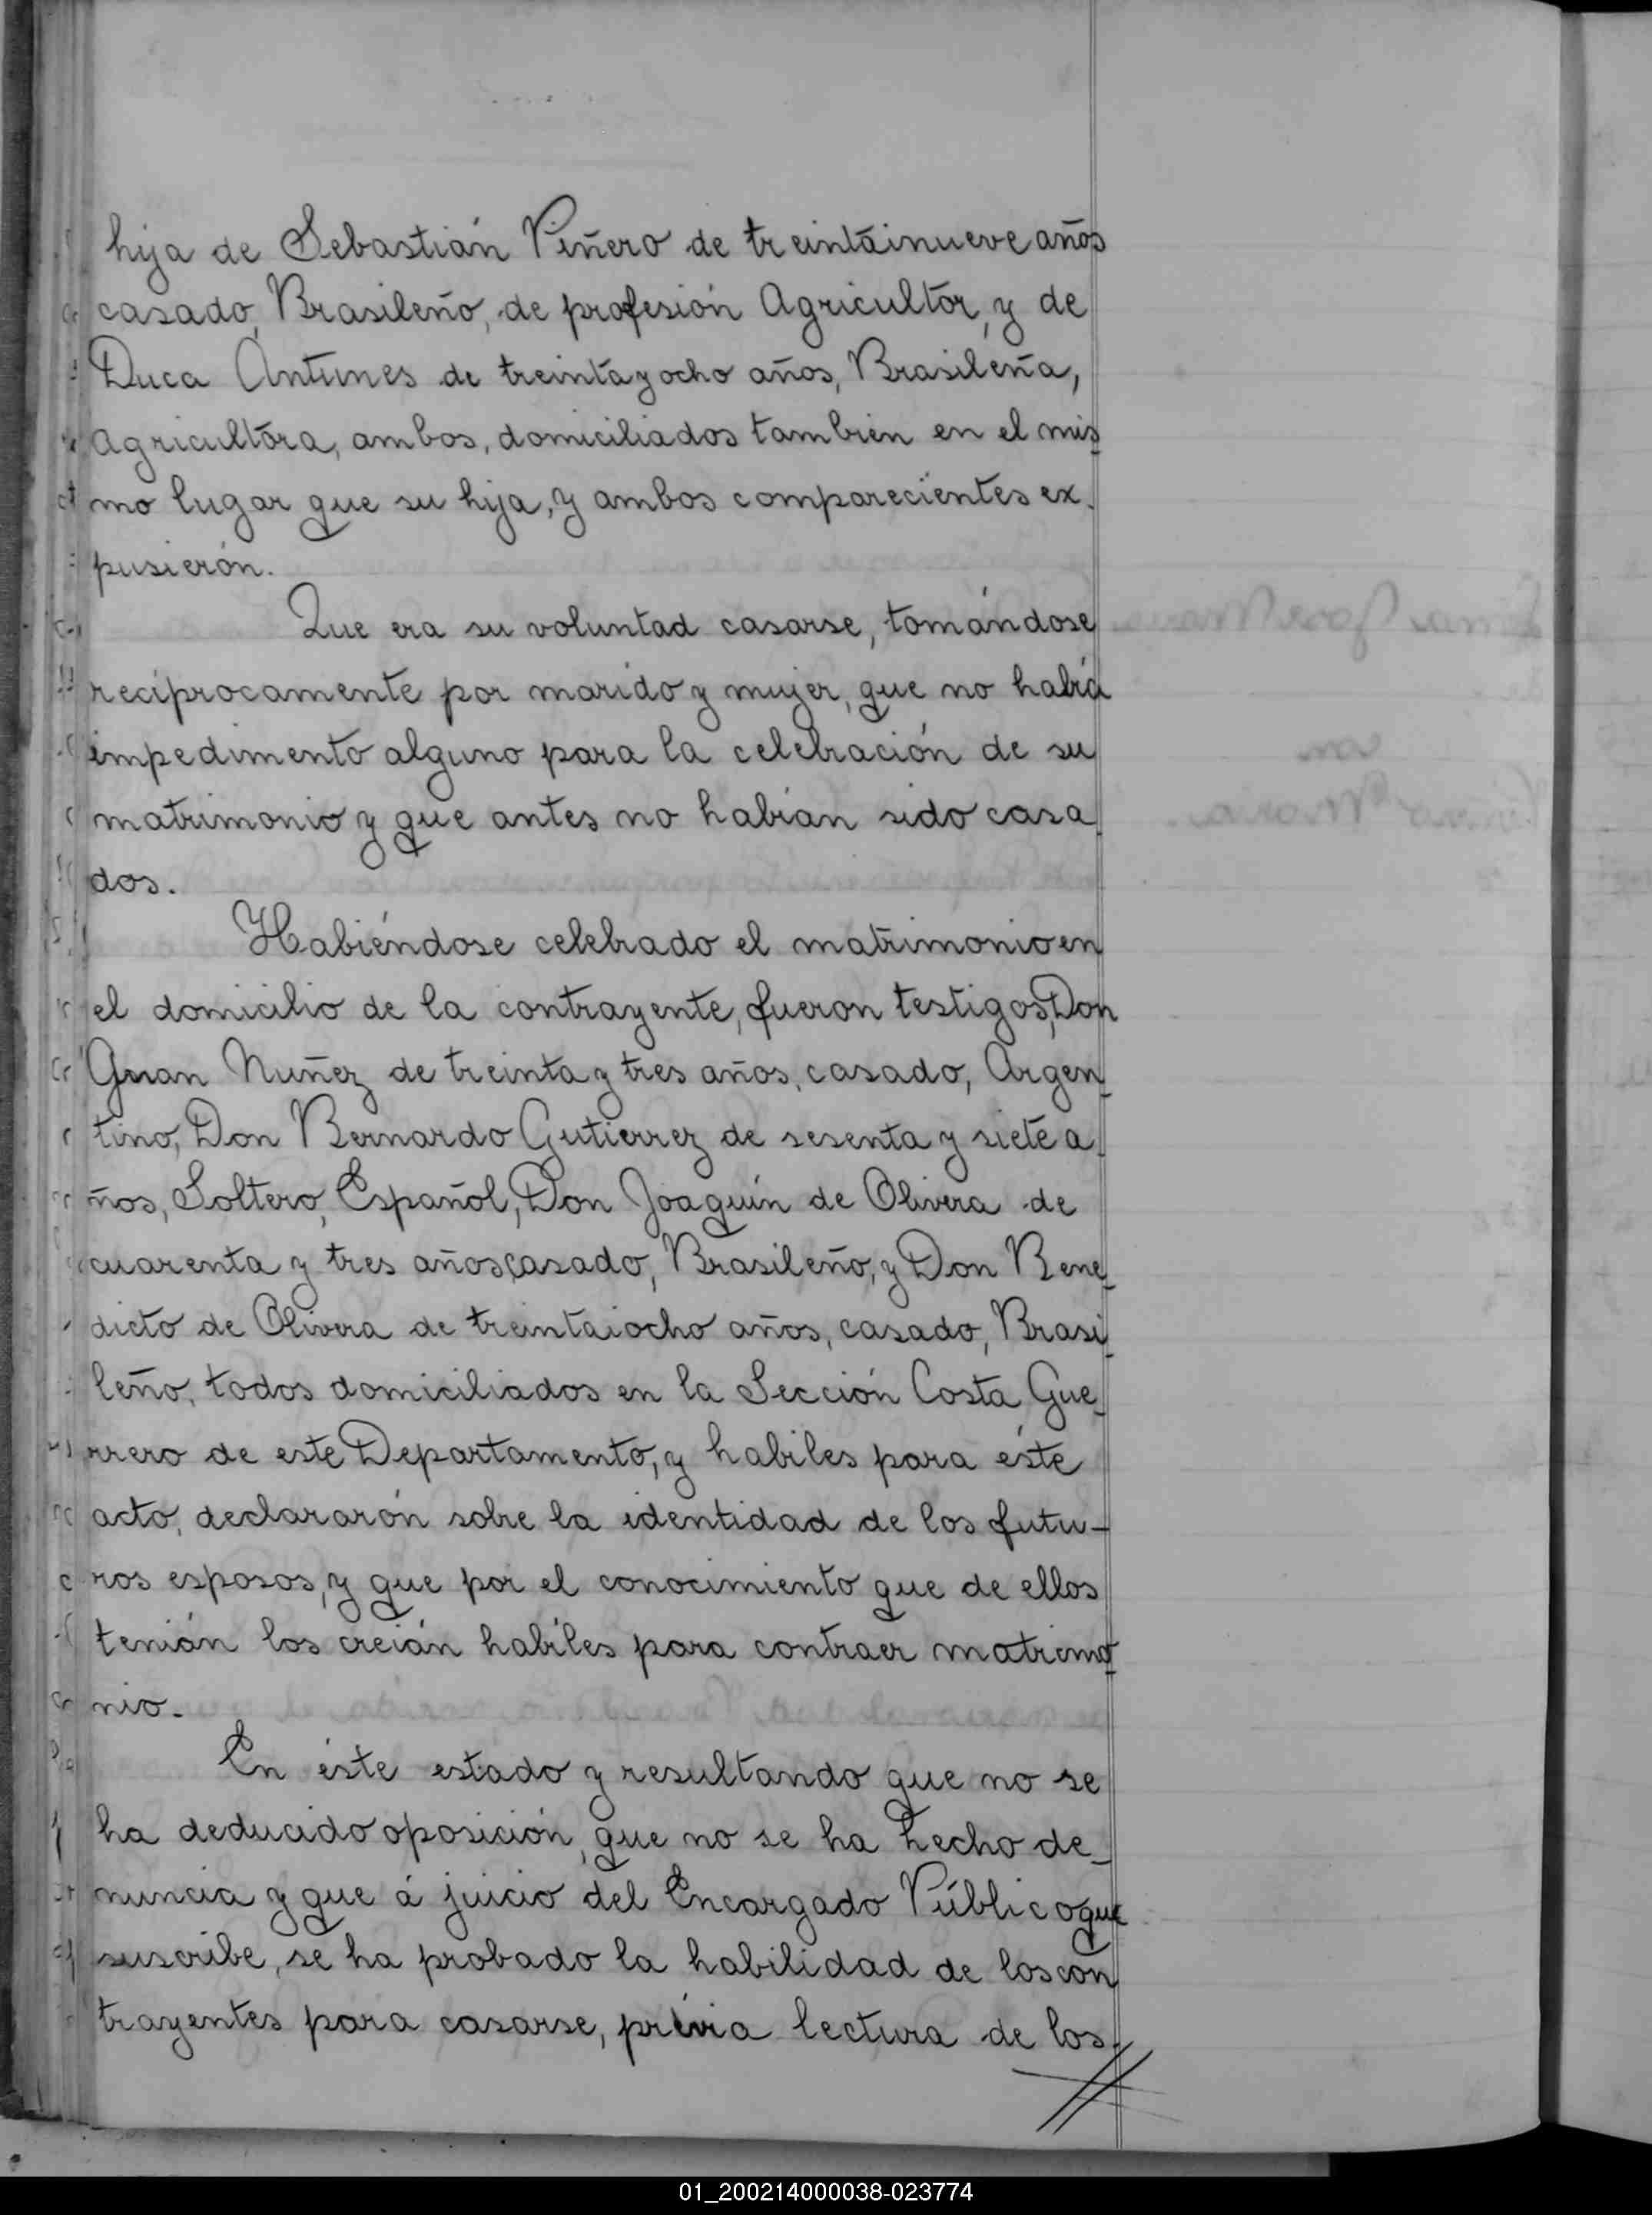 hija de Sebastián Piñero de treintáinueve años
casado, Brasileño, de profesión Agricultor, y de
Duca Antunes de treinta y ocho años, Brasileña,
agricultora, ambos, domiciliados tambien en el mis
mo lugar que su hija, y ambos comparecientes ex-
pusierón.
Que era su voluntad casarse, tomándose
reciprocamente por marido y mujer, que no había
impedimento alguno para la celebración de su
matrimonio y que antes no habían sido casa
dos.
Habiéndose celebrado el matrimonio en
el domicilio de la contrayente, fueron testigos, Don
Juan Nuñez de treinta y tres años, casado, Argen-
tino, Don Bernardo Gutierrez de sesenta y siete a-
ños, Soltero, Español, Don Joaquín de Olivera de
cuarenta y tres años, casado, Brasileño, y Don Bene-
dicto de Olivera de treintaiocho años, casado, Brasi
leño, todos domiciliados en la Sección Costa Gue-
rrero de este Departamento, y habiles para éste
acto, declararón sobre la identidad de los futu-
ros esposos, y que por el conocimiento que de ellos
tenián los creián habiles para contraer matrimo
nio.
En éste estado y resultando que no se
ha deducido oposición, que no se ha hecho de-
nuncia y que á juicio del Encargado Público que
suscribe, se ha probado la habilidad de los con
trayentes para casarse, prévia lectura de los
01_200214000038-023774